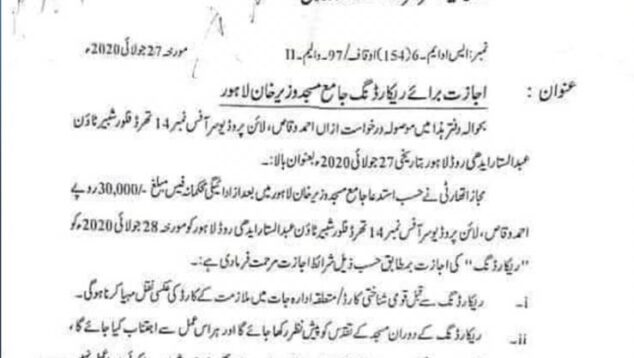 نمبر: ایس او ایم۔6(154)اوقاف/97۔والیم۔II مورخہ 27 جولائی 2020ء
عنوان : اجازت برائے ریکارڈنگ جامع مسجد وزیر خان لاہور
بحوالہ دفتر ہذا میں موصولہ درخواست ازاں احمد وقاص، لائن پروڈیوسر آفس نمبر 14 تھرڈ فلور شبیر ٹاؤن
عبدالستار ایدھی روڈ لاہور بتاریخ 27 جولائی 2020ء بعنوان بالا:۔
مجاز اتھارٹی نے حسب استدعا جامع مسجد وزیر خان لاہور میں بعد از ادائیگی محکمانہ فیس مبلغ /-30,000 روپے
احمد وقاص، لائن پروڈیوسر آفس نمبر 14 تھرڈ فلور شبیر ٹاؤن عبدالستار ایدھی روڈ لاہور کو مورخہ 28 جولائی 2020ء کو
"ریکارڈنگ" کی اجازت بمطابق حسب ذیل شرائط اجازت مرحمت فرما دی ہے:۔
i۔ ریکارڈنگ سے قبل قومی شناختی کارڈ/متعلقہ ادارہ جات میں ملازمت کے کارڈ کی عکسی نقل مہیا کرنا ہوگی۔
ii۔ ریکارڈنگ کے دوران مسجد کے تقدس کو پیش نظر رکھا جائے گا اور ہر اس عمل سے اجتناب کیا جائے گا،